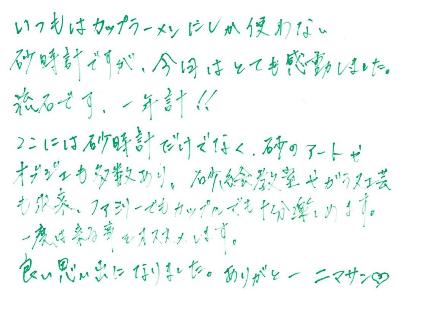 いつもはカップラーメンにしか使わない
砂時計ですが、今回はとても感動しました。
流石です、一年計!!
ここには砂時計だけでなく、砂のアートや
オブジェも多数あり、砂絵教室やガラス工芸
も出来、ファミリーでもカップルでも十分楽しめます。
一度は来る事をオススメします。
良い思い出になりました。ありがとー ニマサン♡